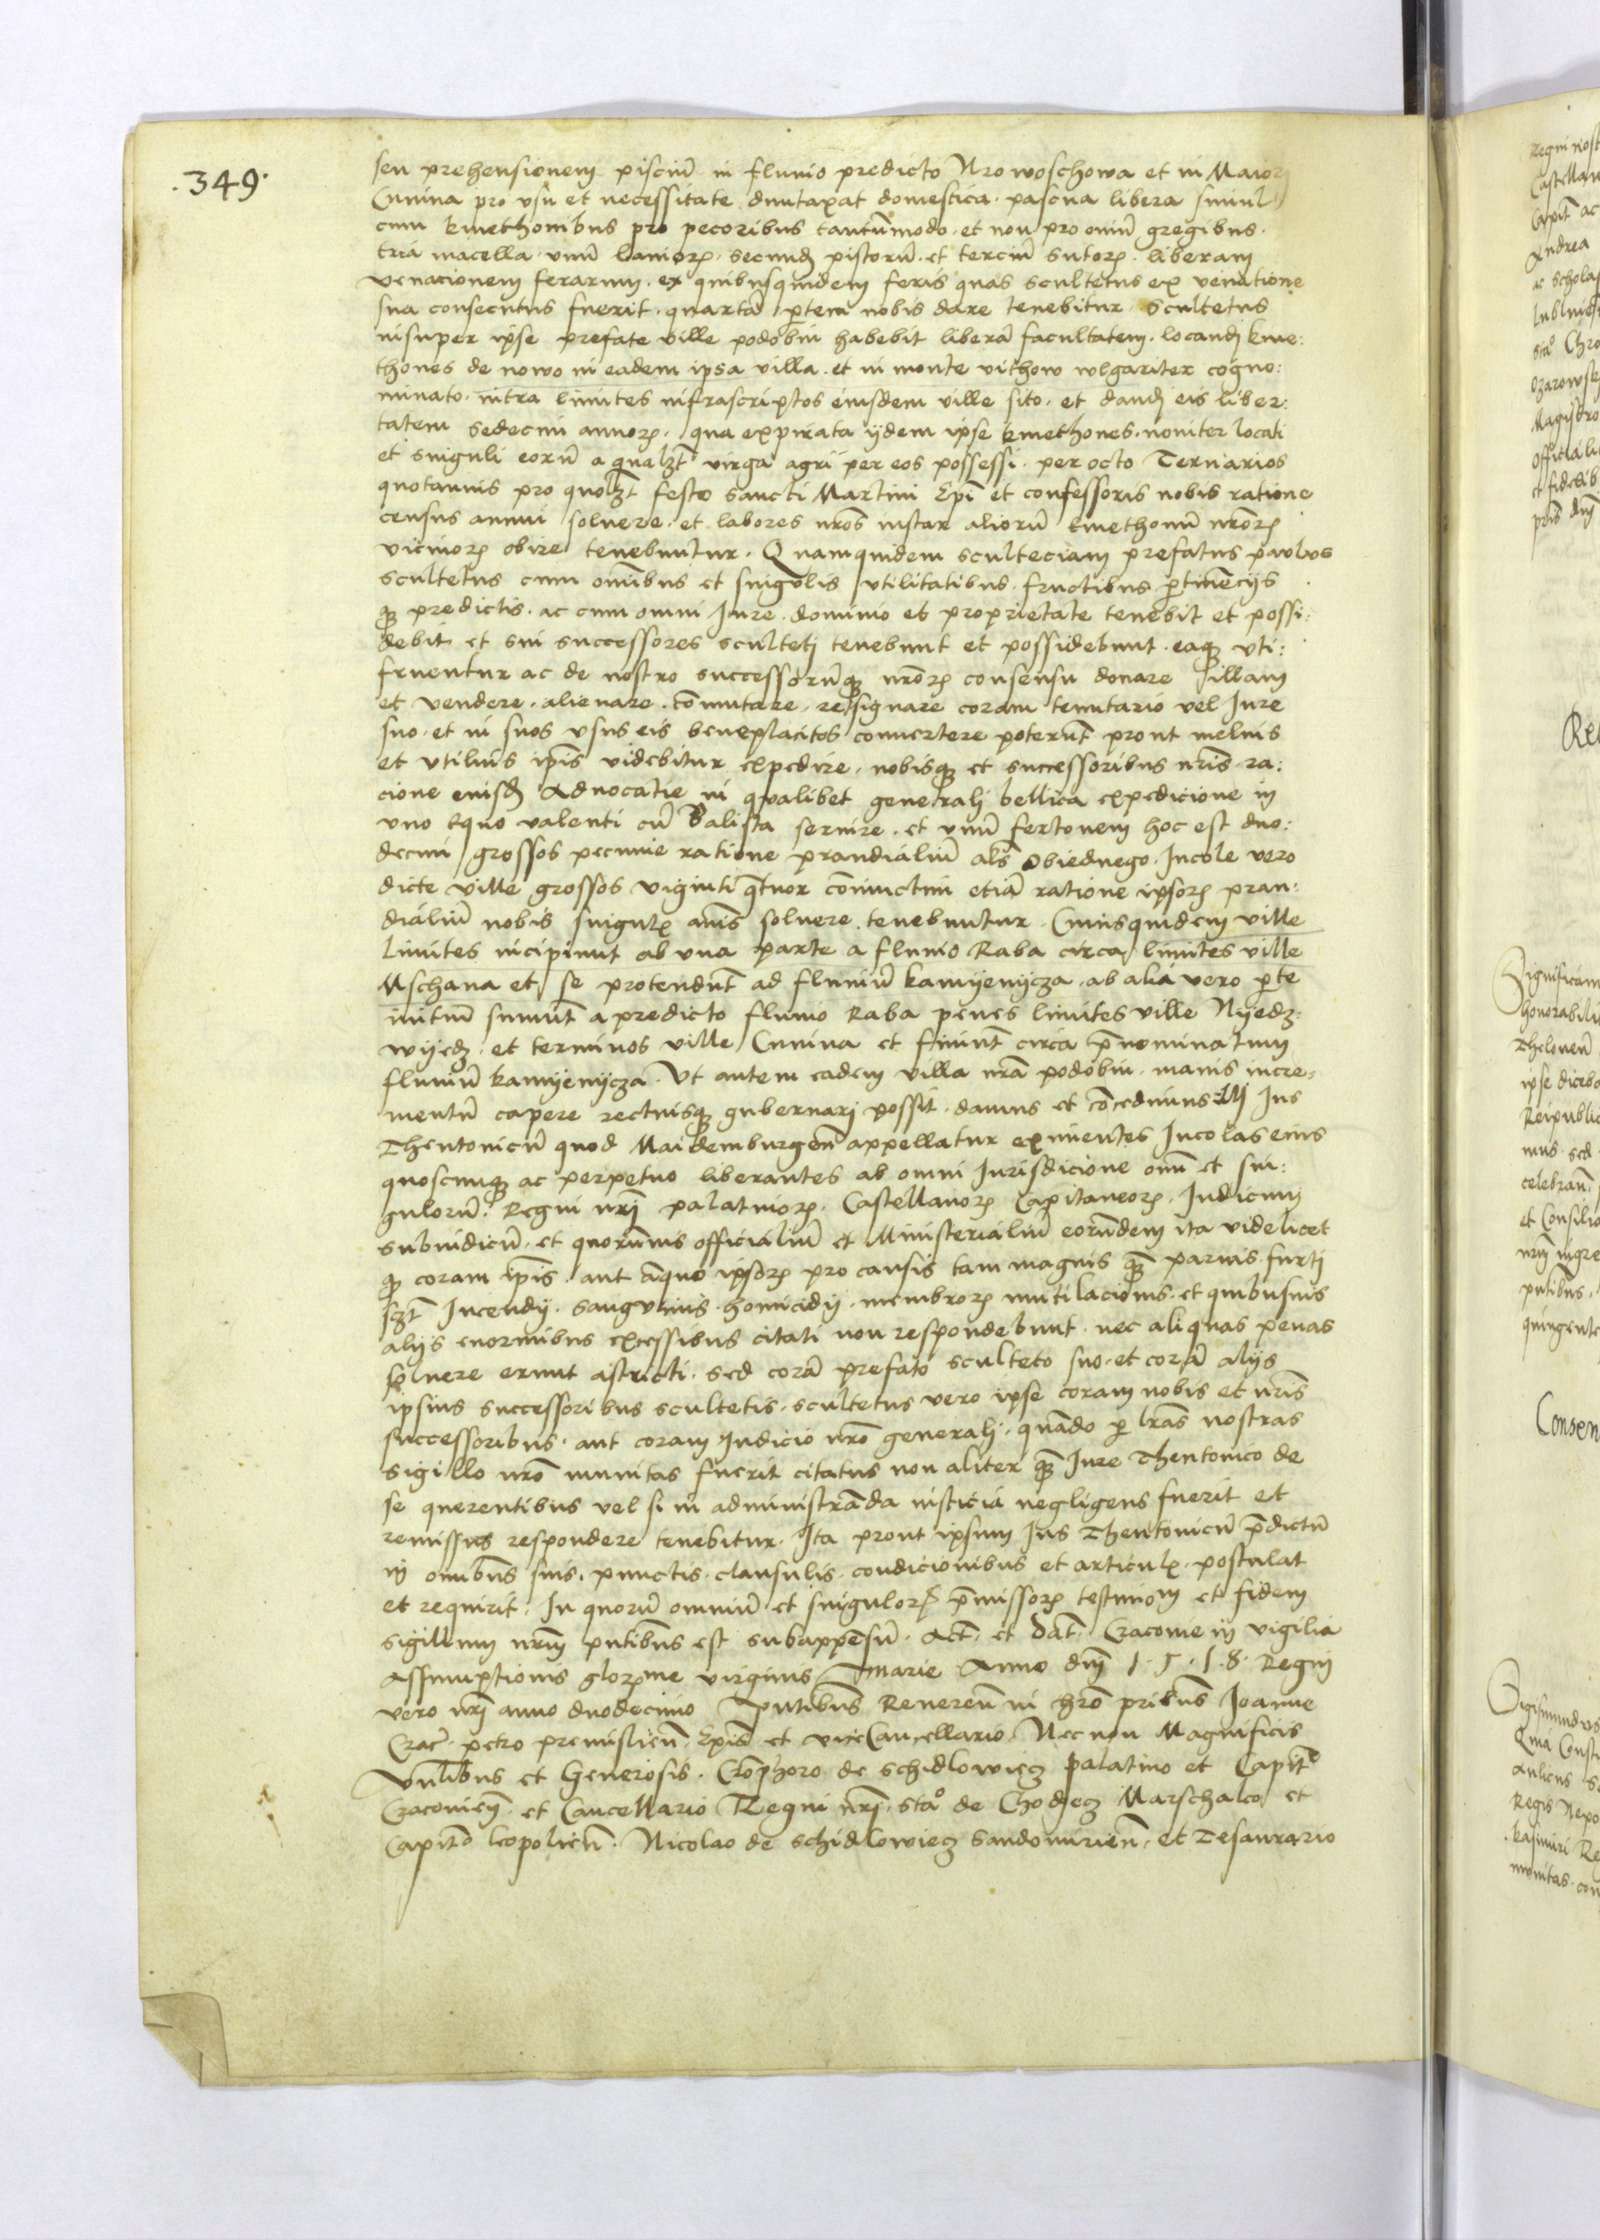 .349.
seu prehensionem pisciũ in fluvio predicto Nrowoschowa et in Maiori
Cunina pro usu et necessitate dumtaxat domestica. pascua libera simul
cum kmethonibus pro pecoribus tantũmodo. et non pro oviũ gregibus.
tria macella. unũ lanioꝝ. secundũ pistorũ. et terciũ sutoꝝ. liberam
venacionem ferarum. ex quibusquidem feris quas scultetus ex venatione
sua consecutus fuerit. quartã ꝑtem nobis dare tenebitur. Scultetus
insuper ipse prefate ville podobin habebit liberã facultatem. locandi kme:
thones de nowo in eadem ipsa villa. et in monte vithow wlgariter cogno:
minato. intra limites infrascriptos eiusdem ville sito. et dandi eis liber:
tatem sedecim annoꝝ. qua expirata ijdem ipse kmethones. noviter locati
et singuli eorũ a qualꝫt virga agri per eos possessi. per octo Ternarios
quotannis pro quolꝫt festo sancti Martini Epĩ et confessoris nobis ratione
census annui solvere. et labores nr̃os instar aliorũ kmethonũ nr̃oꝝ
vicinoꝝ obire tenebuntur. Quamquidem sculteciam prefatus paulus
scultetus cum omĩbus et singulis utilitatibus. fructibus ꝑtinẽcijs
qꝫ predictis. ac cum omni Iure. dominio et proprietate tenebit et possi:
debit et sui successores sculteti tenebunt et possidebunt. eaqꝫ uti:
fruentur ac de nostro successorũqꝫ nr̃oꝝ consensu donare illam
et vendere. alienare. cõmutare. resignare coram tenutario vel Iure
suo. et in suos usus eis beneplacitos convertere poterũt prout melius
et utilius ip̃is videbitur expedire. nobisqꝫ et successoribus nr̃is ra:
cione eiusdẽ Advocatie in qualibet generali bellica expedicione in
uno equo valenti cũ Balista servire. et unũ fertonem hoc est duo:
decim grossos pecunie ratione prandialiũ als̃ Obiednego. Incole vero
dicte ville grossos viginti q̃tuor cõiunctim etiã ratione ipsoꝝ pran:
dialiũ nobis singulꝭ anĩs solvere tenebuntur. Cuiusquidem ville
limites incipiunt ab una parte a fluvio Raba circa limites ville
Mschana et se protendũt ad fluviũ kamyenycza. ab alia vero ꝑte
initiũ sumũt a predicto fluvio Raba penes limites ville Nyedz:
wyedz. et terminos ville Cunina et finiũt circa p̃nominatum
fluviũ kamyenycza. Ut autem eadem villa nr̃a podobin. maius incre:
mentũ capere rectiusqꝫ gubernari possit. damus et cõcedimus illi Ius
Theutonicũ quod Maidemburgeñ appellatur eximentes Incolas eius
quoscumqꝫ ac perpetuo liberantes ab omni Iurisdicione om̃i et sin:
gulorũ. Regni nr̃i palatinoꝝ. Castellanoꝝ Capitaneoꝝ. Iudicum
subiudicũ. et quorũvis officialiũ et Ministerialiũ eorũdem ita videlicet
qꝫ coram ip̃is aut aliquo ipsoꝝ pro causis tam magnis qꝫ parvis. furti
sꝫt Incendij. sanguinis. homicidij. membroꝝ mutilacionis. et quibusvis
alijs enormibus excessibus citati non respondebunt. nec aliquas penas
solvere erunt astricti. sed corã prefato sculteto suo. et corã alijs
ipsius successoribus scultetis. scultetus vero ipse coram nobis et nr̃is
successoribus. aut coram Iudicio nr̃o generali. quãdo ꝑ lr̃as nostras
sigillo nr̃o munitas fuerit citatus non aliter qꝫ Iure Theutonico de
se querentibus vel si in administrãda iusticia negligens fuerit et
remissus respondere tenebitur. Ita prout ipsum Ius Theutonicũ p̃dictũ
in omĩbus suis. punctis. clausulis. condicionibus et articulꝭ. postulat
et requirit. In quorũ omniũ et singuloꝝ p̃missoꝝ testimoñ et fidem
sigillum nr̃m pñtibus est subappẽsũ. Act̃. et Dat̃. Cracovie in vigilia
Assumptionis gloꝝme virginis Marie Anno dñi 1.5.1.8. Regni
vero nr̃i anno duodecimo. Pñtibus Reverẽn in chrõ pr̃ibus Ioanne
Crac̃. petro premislieñ. Ep̃is et viceCancellario. Nec non Magnificis
Vñlibus et Generosis. Cr̃ophoro de Schidlowiecz palatino et Capit̃o
Cracovieñ. et Cancellario Regni nr̃i. Sta͠o de Chodecz Marschalco et
Capit̃o leopolieñ. Nicolao de Schidlowiecz Sandomirieñ. et Tesaurario